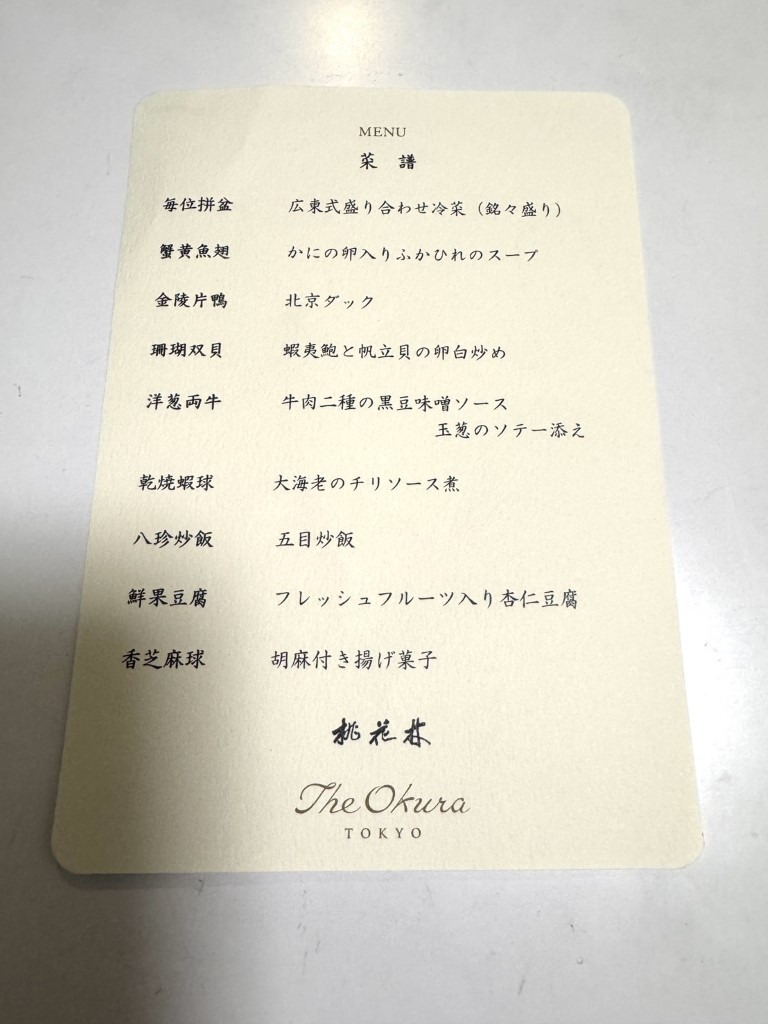 MENU
菜 譜
毎位拼盆 広東式盛り合わせ冷菜（銘々盛り）
蟹黄魚翅 かにの卵入りふかひれのスープ
金陵片鴨 北京ダック
珊瑚双貝 蝦夷鮑と帆立貝の卵白炒め
洋葱両牛 牛肉二種の黒豆味噌ソース
玉葱のソテー添え
乾焼蝦球 大海老のチリソース煮
八珍炒飯 五目炒飯
鮮果豆腐 フレッシュフルーツ入り杏仁豆腐
香芝麻球 胡麻付き揚げ菓子
桃花林
The Okura
TOKYO